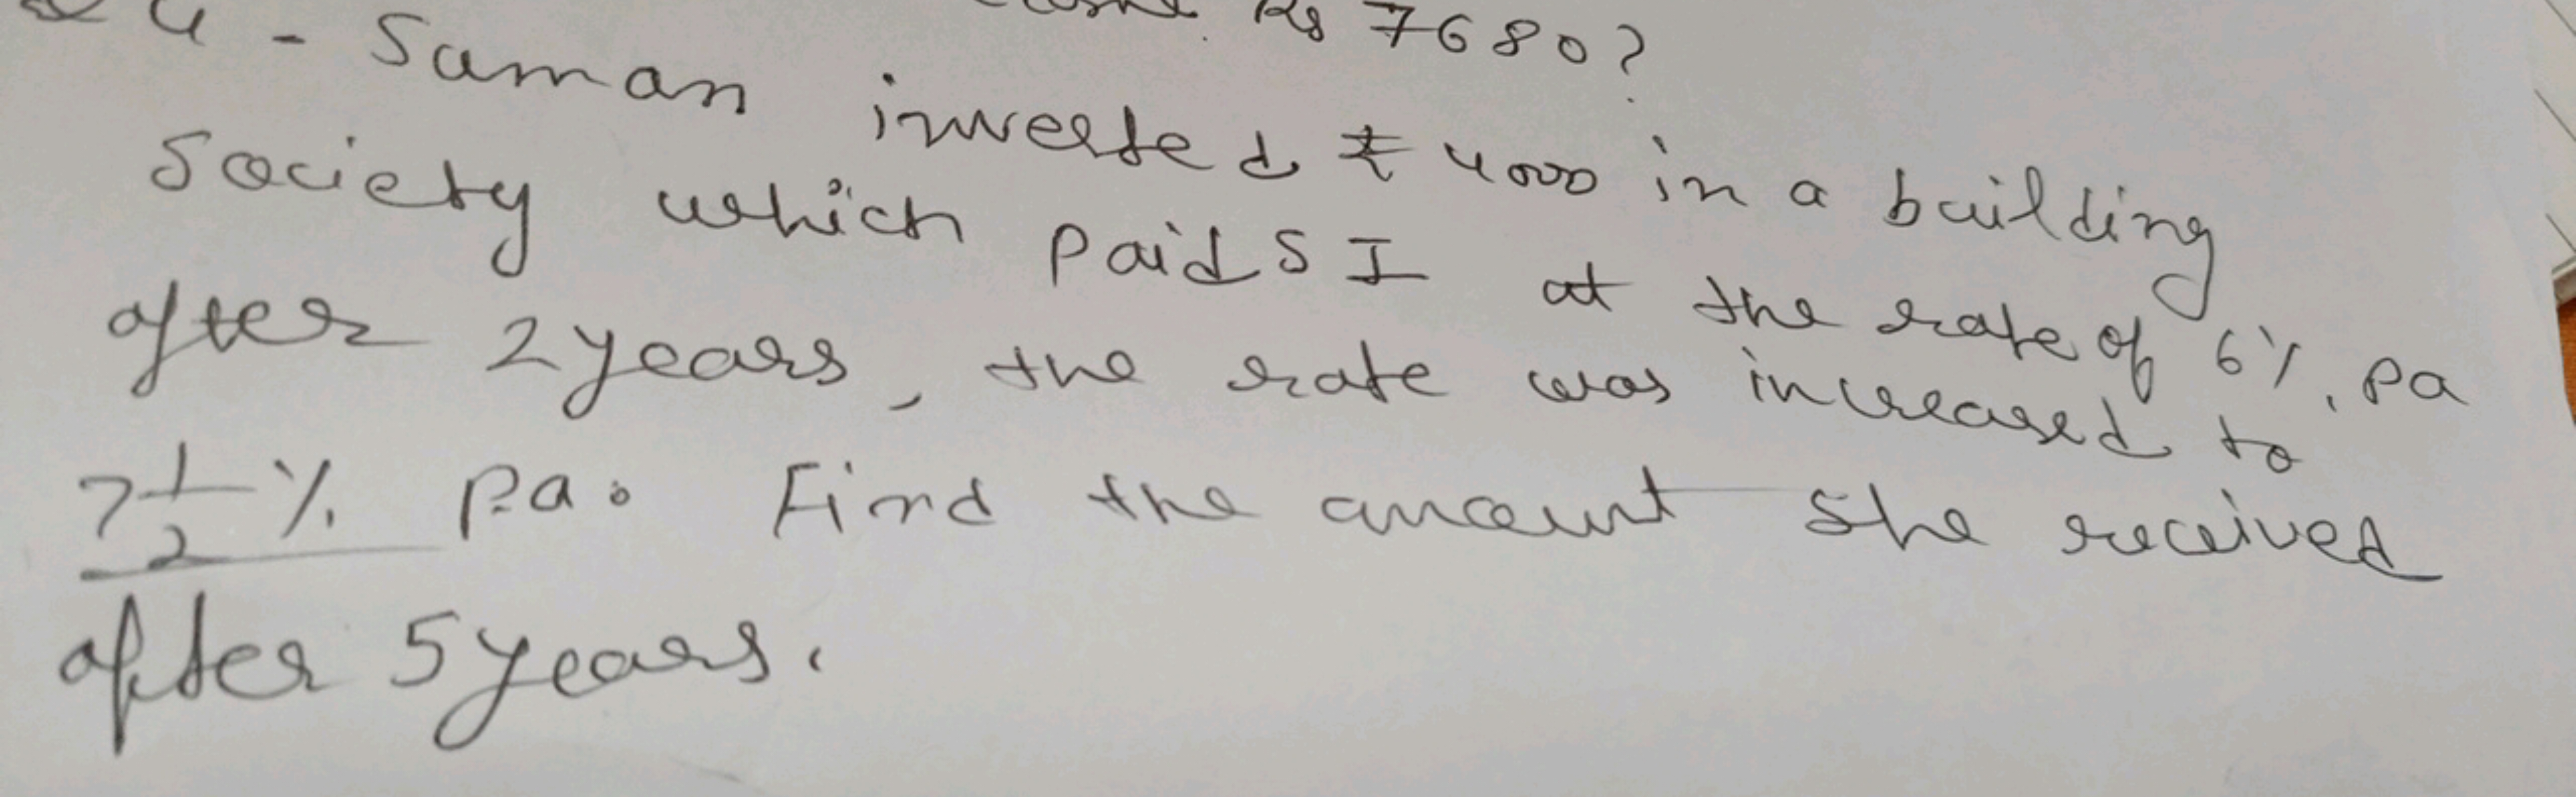 Rs 7680?
4 - Suman invested ₹ 4000 in a building
Society which paid S I at the rate of 6%. pa
after 2 years, the rate was increased to
7 1/2 % p.a. Find the amount she received
after 5 years.